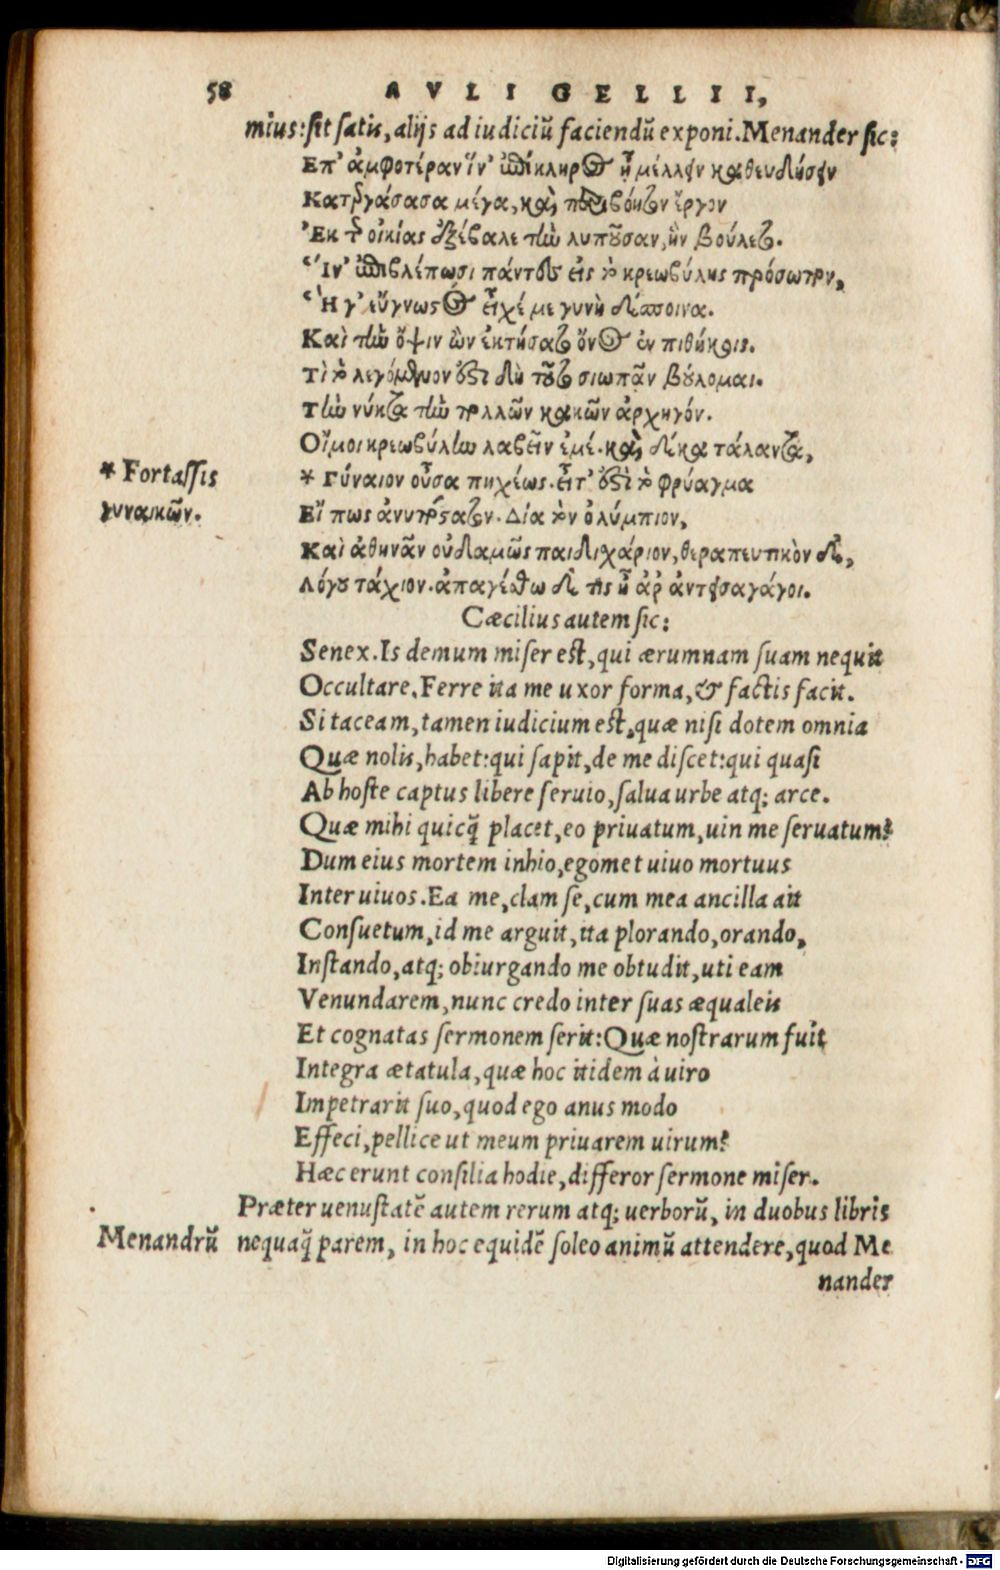 58 AVLI GELLII,
mius: sit satis, alijs ad iudiciũ faciendũ exponi. Menander sic:
Επ' ἀμφοτέραν ἵν' ἐπίκληρος ἡ μέλλειν καθευδήσειν
Κατεργάσασα μέγα, καὶ περιβόητον ἔργον
Ἐκ τῆς οἰκίας ἐξέβαλε τὴν λυποῦσαν, ἣν βούλετο.
Ἵν' ἐπιβλέπωσι πάντες εἰς τὸ κρεωβύλης πρόσωπον,
Ἡ γ' εὔγνωστος εἶχέ με γυνὴ δέσποινα.
Καὶ τὴν ὄψιν ὢν ἐκτήσατο ὄνος ἐν πιθήκοις.
Τὶ τὸ λεγόμενον ἐστὶ δὴ τοῦτο σιωπᾶν βούλομαι.
Τὴν νύκτα τὴν πολλῶν κακῶν ἀρχηγόν.
Οἴμοι κρεωβύλην λαβεῖν ἐμέ. καὶ δέκα τάλαντα,
* Fortassis
* Γύναιον οὖσα πηχέως. εἶτ' ἐστὶ τὸ φρύαγμα
γυναικῶν.
Εἴ πως ἀνυπόστατον. Δία τὸν ὀλύμπιον,
Καὶ ἀθηνᾶν οὐδαμῶς παιδιχάριον, θεραπευτικὸν δὲ,
Λόγου τάχιον. ἀπαγέσθω δὲ τις ἢ ἂρ ἀντεισαγάγοι.
Cæcilius autem sic:
Senex. Is demum miser est, qui ærumnam suam nequit
Occultare. Ferre ita me uxor forma, & factis facit.
Si taceam, tamen iudicium est, quæ nisi dotem omnia
Quæ nolis, habet: qui sapit, de me discet: qui quasi
Ab hoste captus libere seruio, salua urbe atq; arce.
Quæ mihi quicq̃ placet, eo priuatum, uin me seruatum?
Dum eius mortem inhio, egomet uiuo mortuus
Inter uiuos. Ea me, clam se, cum mea ancilla ait
Consuetum, id me arguit, ita plorando, orando,
Instando, atq; obiurgando me obtudit, uti eam
Venundarem, nunc credo inter suas æqualeis
Et cognatas sermonem serit: Quæ nostrarum fuit
Integra ætatula, quæ hoc itidem à uiro
Impetrarit suo, quod ego anus modo
Effeci, pellice ut meum priuarem uirum?
Hæc erunt consilia hodie, differor sermone miser.
Præter uenustatẽ autem rerum atq; uerborũ, in duobus libris
Menandrũ nequaq̃ parem, in hoc equidẽ soleo animũ attendere, quod Me
nander
Digitalisierung gefördert durch die Deutsche Forschungsgemeinschaft - DFG